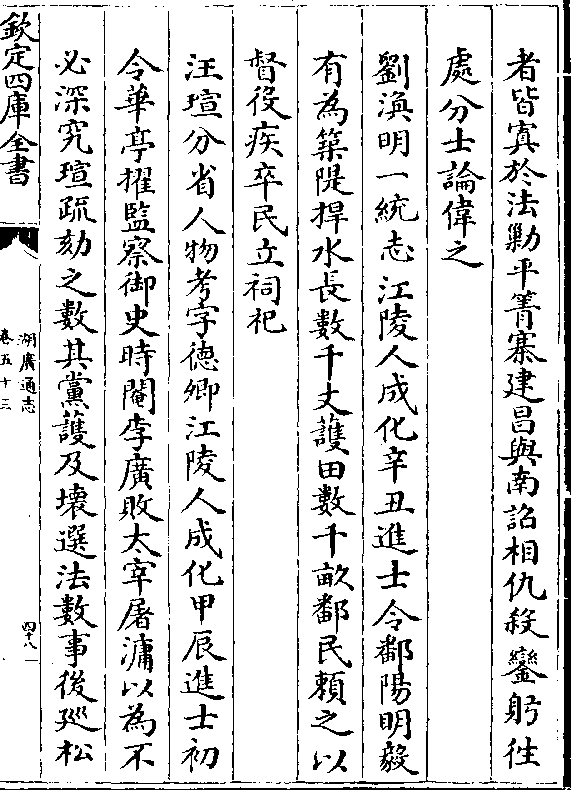 者皆寘於法勦平箐寨建昌與南詔相仇殺鑾躬徃
處分士論偉之
劉渙明一統志江陵人成化辛丑進士令鄱陽明毅
有為築隄捍水長數千丈䕶田數千畝鄱民頼之以
督役疾卒民立祠祀
汪瑄分省人物考字德卿江陵人成化甲辰進士初
令華亭擢監察御史時閹李廣敗太宰屠滽以為不
必深究瑄疏劾之數其黨䕶及壊選法數事後廵松
欽定四庫全書
湖廣通志
卷五十三
四十八